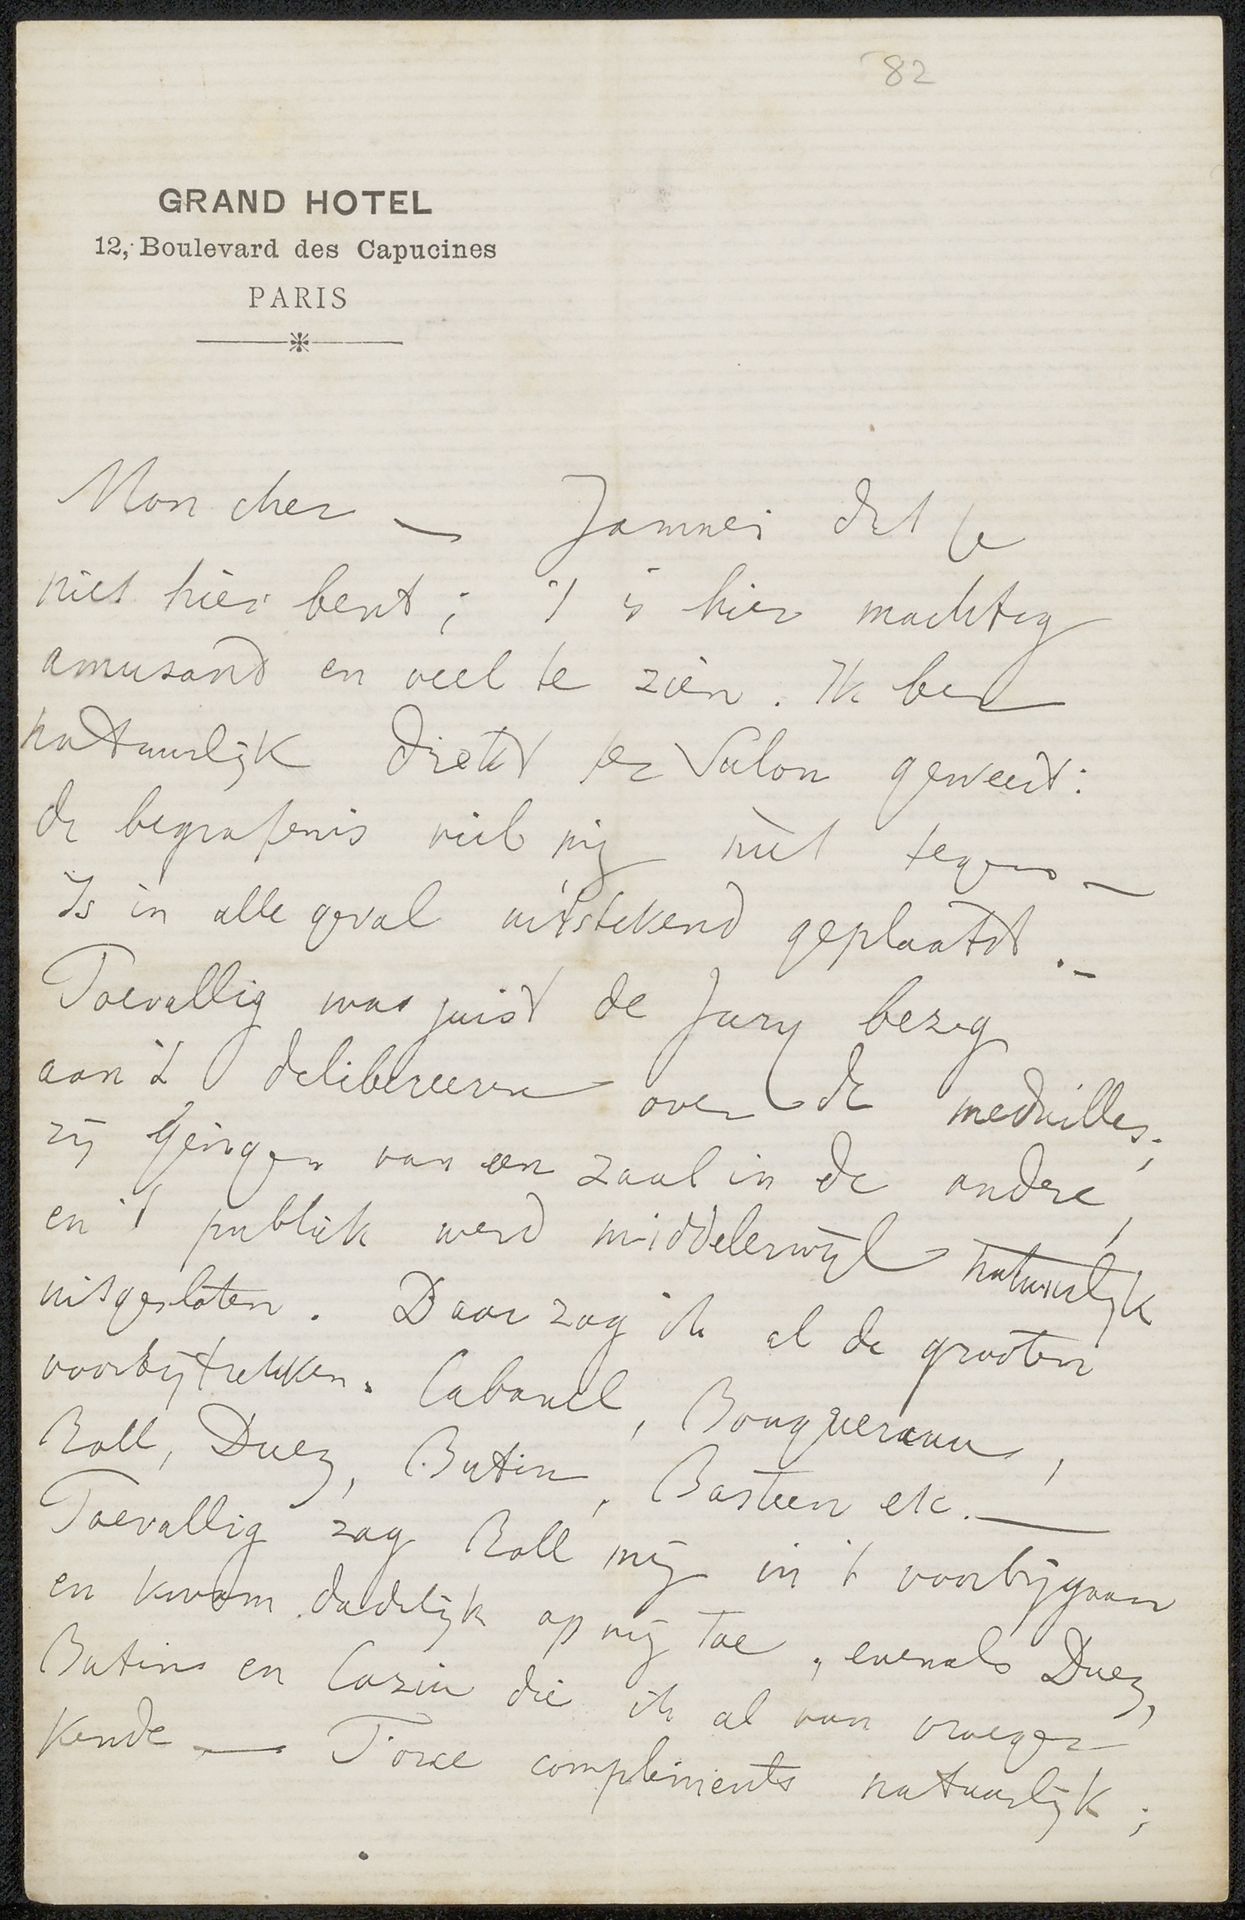 82
GRAND HOTEL
12, Boulevard des Capucines
PARIS
Mon cher — Jammer dat je
niet hier bent; 't is hier machtig
amusand en veel te zien. Ik ben
natuurlijk direkt ter Salon geweest:
de begrafenis viel mij niet tegen —
Is in alle geval uitstekend geplaatst. –
Toevallig was juist de Jury bezig
aan 't delibereeren over de medailles;
zij gingen van een zaal in de andre,
en 't publiek werd middelerwijl natuurlijk
uitgesloten. Daar zag ik al de grooten
voorbijtrekken. Cabanel, Bouguereau,
Roll, Duez, Butin, Bastien etc. —
Toevallig zag Roll mij in 't voorbijgaan
en kwam dadelijk op mij toe, evenals Duez,
Butin en Cazin die ik al van vroeger
kende — Force compliments natuurlijk;